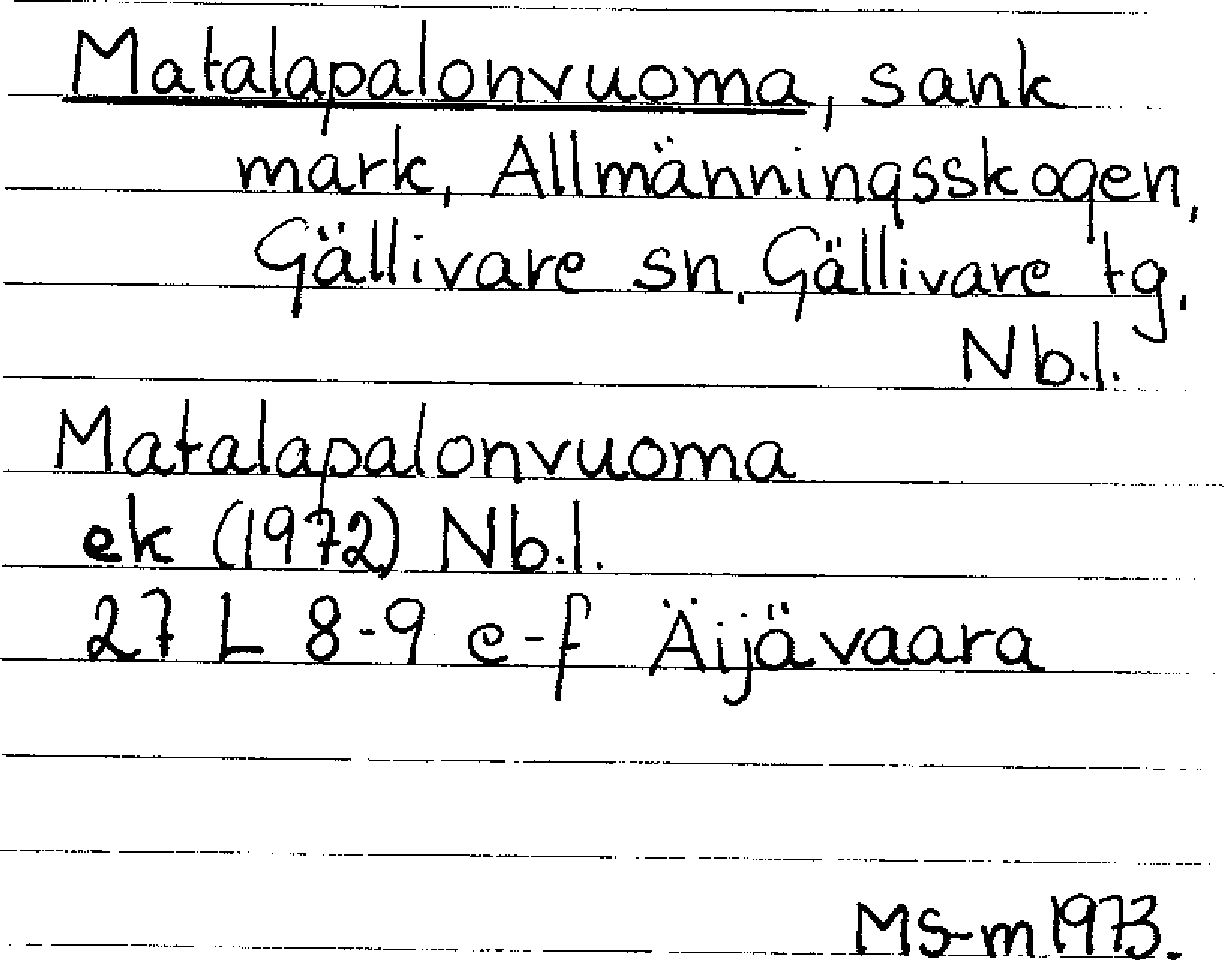 Matalapalonvuoma, sank
mark, Allmänningsskogen,
Gällivare sn, Gällivare tg,
Nb.l.
Matalapalonvuoma
ek (1972) Nb.l.
27 L 8-9 e-f Äijävaara
MS-m 1973.